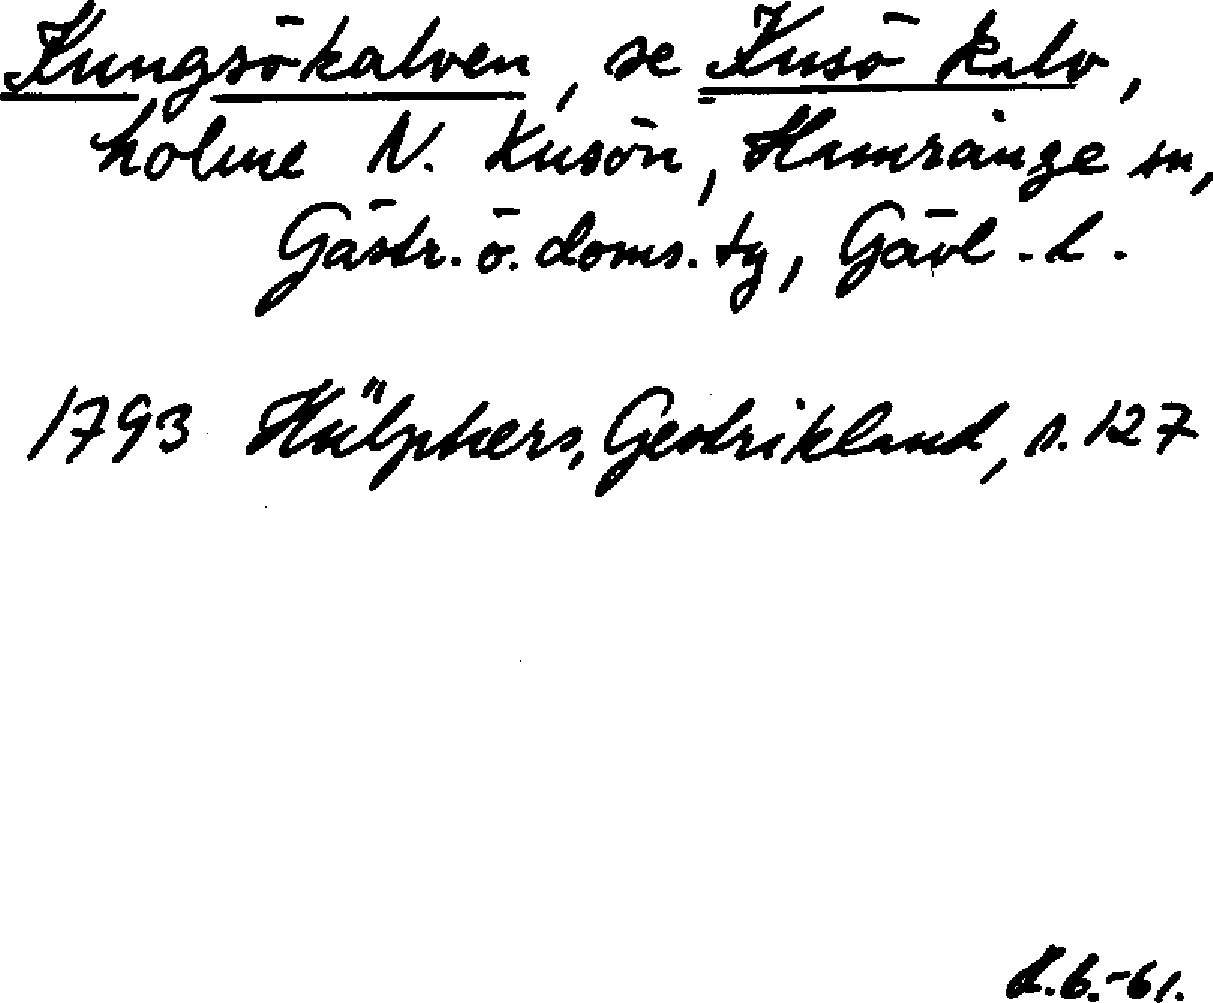 Kungsökalven, se Kusö kalv,
holme N. Kusön, Hamrånge sn,
Gästr. ö. doms. tg, Gävl. l.
1793 Hülphers, Gestrikland, s. 127
d. 6.-61.